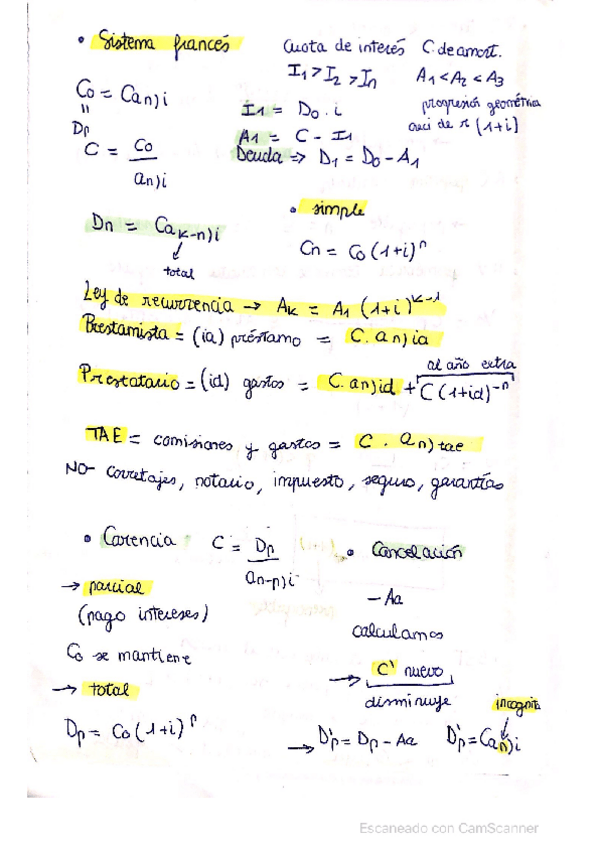 • Sistema francés
Cuota de interés C. de amort.
I1 > I2 > In A1 < A2 < A3
C0 = C an)i
"
Dp
I1 = D0 . i
progresión geométrica
A1 = C - I1
C = C0 / an)i
Deuda => D1 = D0 - A1
Dn = C ak-n)i
↓
total
• simple
Cn = C0 (1+i)^n
Ley de recurrencia → Ak = A1 (1+i)^k-1
Prestamista = (ia) préstamo = C. an)ia
Prestatario = (id) gastos = C. an)id + C (1+id)^-n
al año extra
TAE = comisiones y gastos = C . an)tae
NO- corretajes, notario, impuesto, seguro, garantías
• Carencia C = Dp / an-p)i
→ parcial
(pago intereses)
C0 se mantiene
→ total
Dp = C0 (1+i)^p
• Cancelación
- Aa
calculamos
→ C' nuevo
disminuye
incognita
→ D'p = Dp - Aa D'p = C an)i
Escaneado con CamScanner